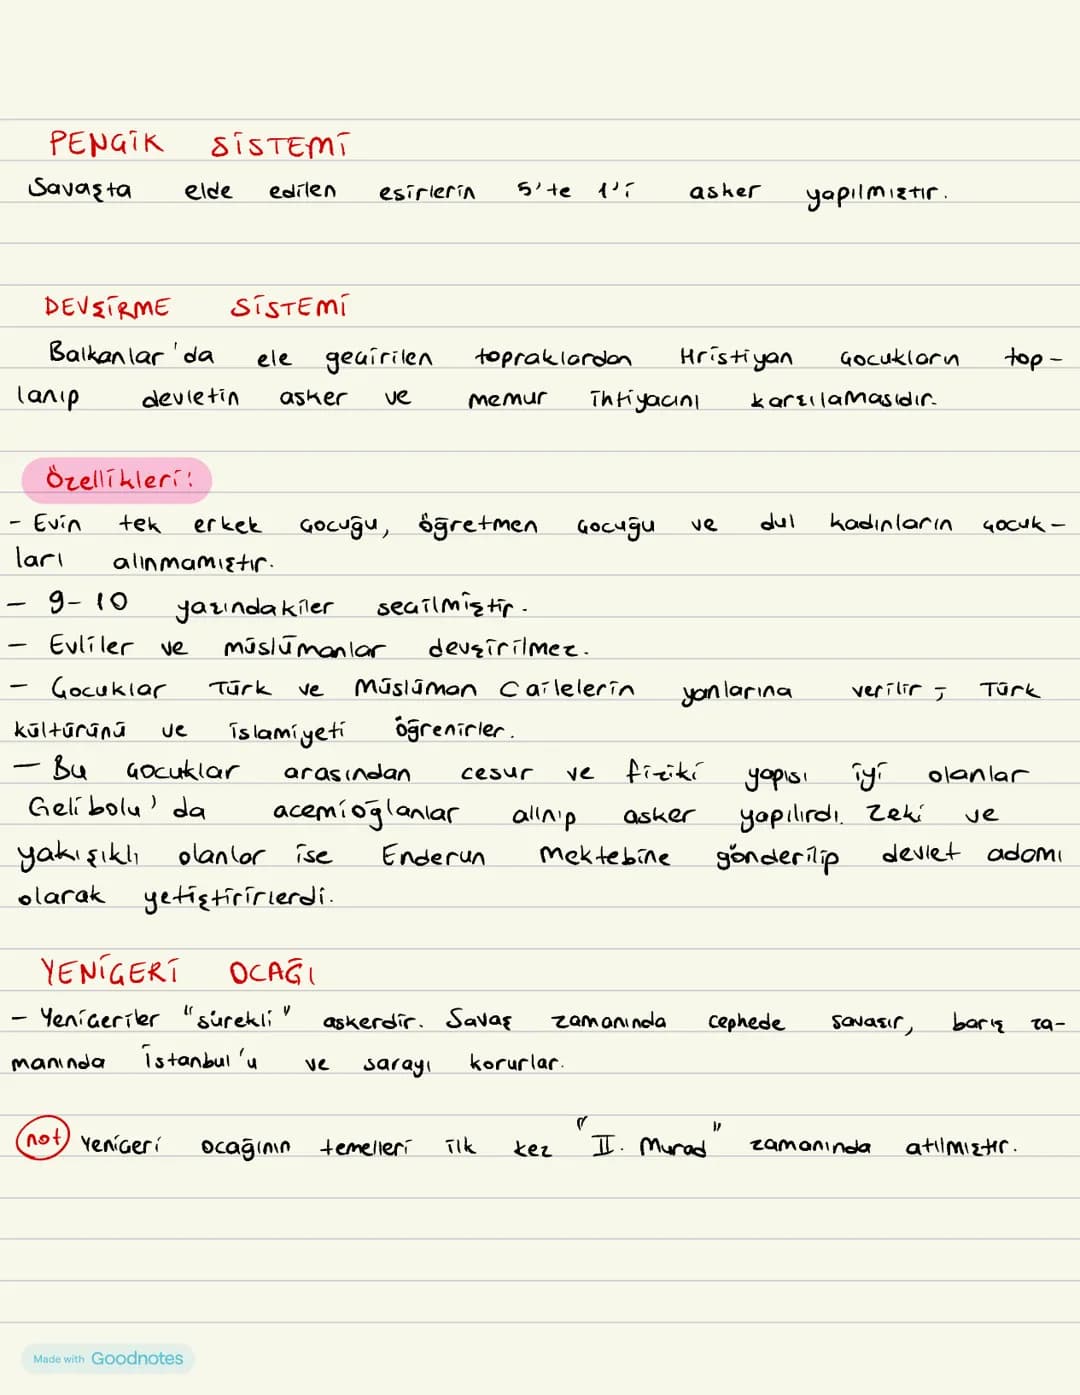 PENÇİK SİSTEMİ
Savaşta elde edilen esirlerin 5'te 1'i asker yapılmıştır.
DEVŞİRME SİSTEMİ
Balkanlar'da ele geçirilen topraklardan Hristiyan çocukların top-
lanıp devletin asker ve memur ihtiyacını karşılamasıdır.
Özellikleri:
- Evin tek erkek çocuğu, öğretmen çocuğu ve dul kadınların çocuk-
ları alınmamıştır.
- 9-10 yaşındakiler seçilmiştir.
- Evliler ve müslümanlar devşirilmez.
- Çocuklar Türk ve Müslüman Cailelerin yanlarına verilir, Türk
kültürünü ve islamiyeti öğrenirler.
- Bu çocuklar arasından cesur ve fiziki yapısı iyi olanlar
Gelibolu'da acemioğlanlar alınıp asker yapılırdı. Zeki ve
yakışıklı olanlar ise Enderun mektebine gönderilip devlet adamı
olarak yetiştirirlerdi.
YENİÇERİ OCAĞI
- Yeniçeriler "sürekli" askerdir. Savaş zamanında cephede savaşır, barış za-
manında İstanbul'u ve sarayı korurlar.
not Yeniçeri ocağının temelleri ilk kez "II. Murad" zamanında atılmıştır.
Made with Goodnotes